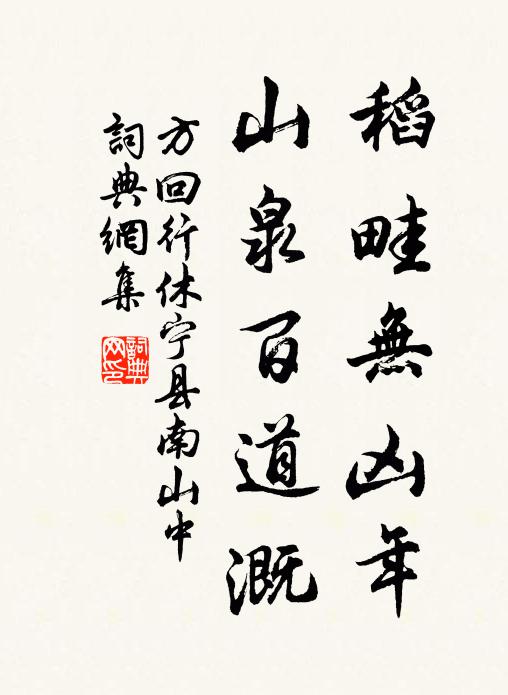 稻畦無凶年
山泉百道溉
方回行休宁县南山中
詞典網集
詞典網印